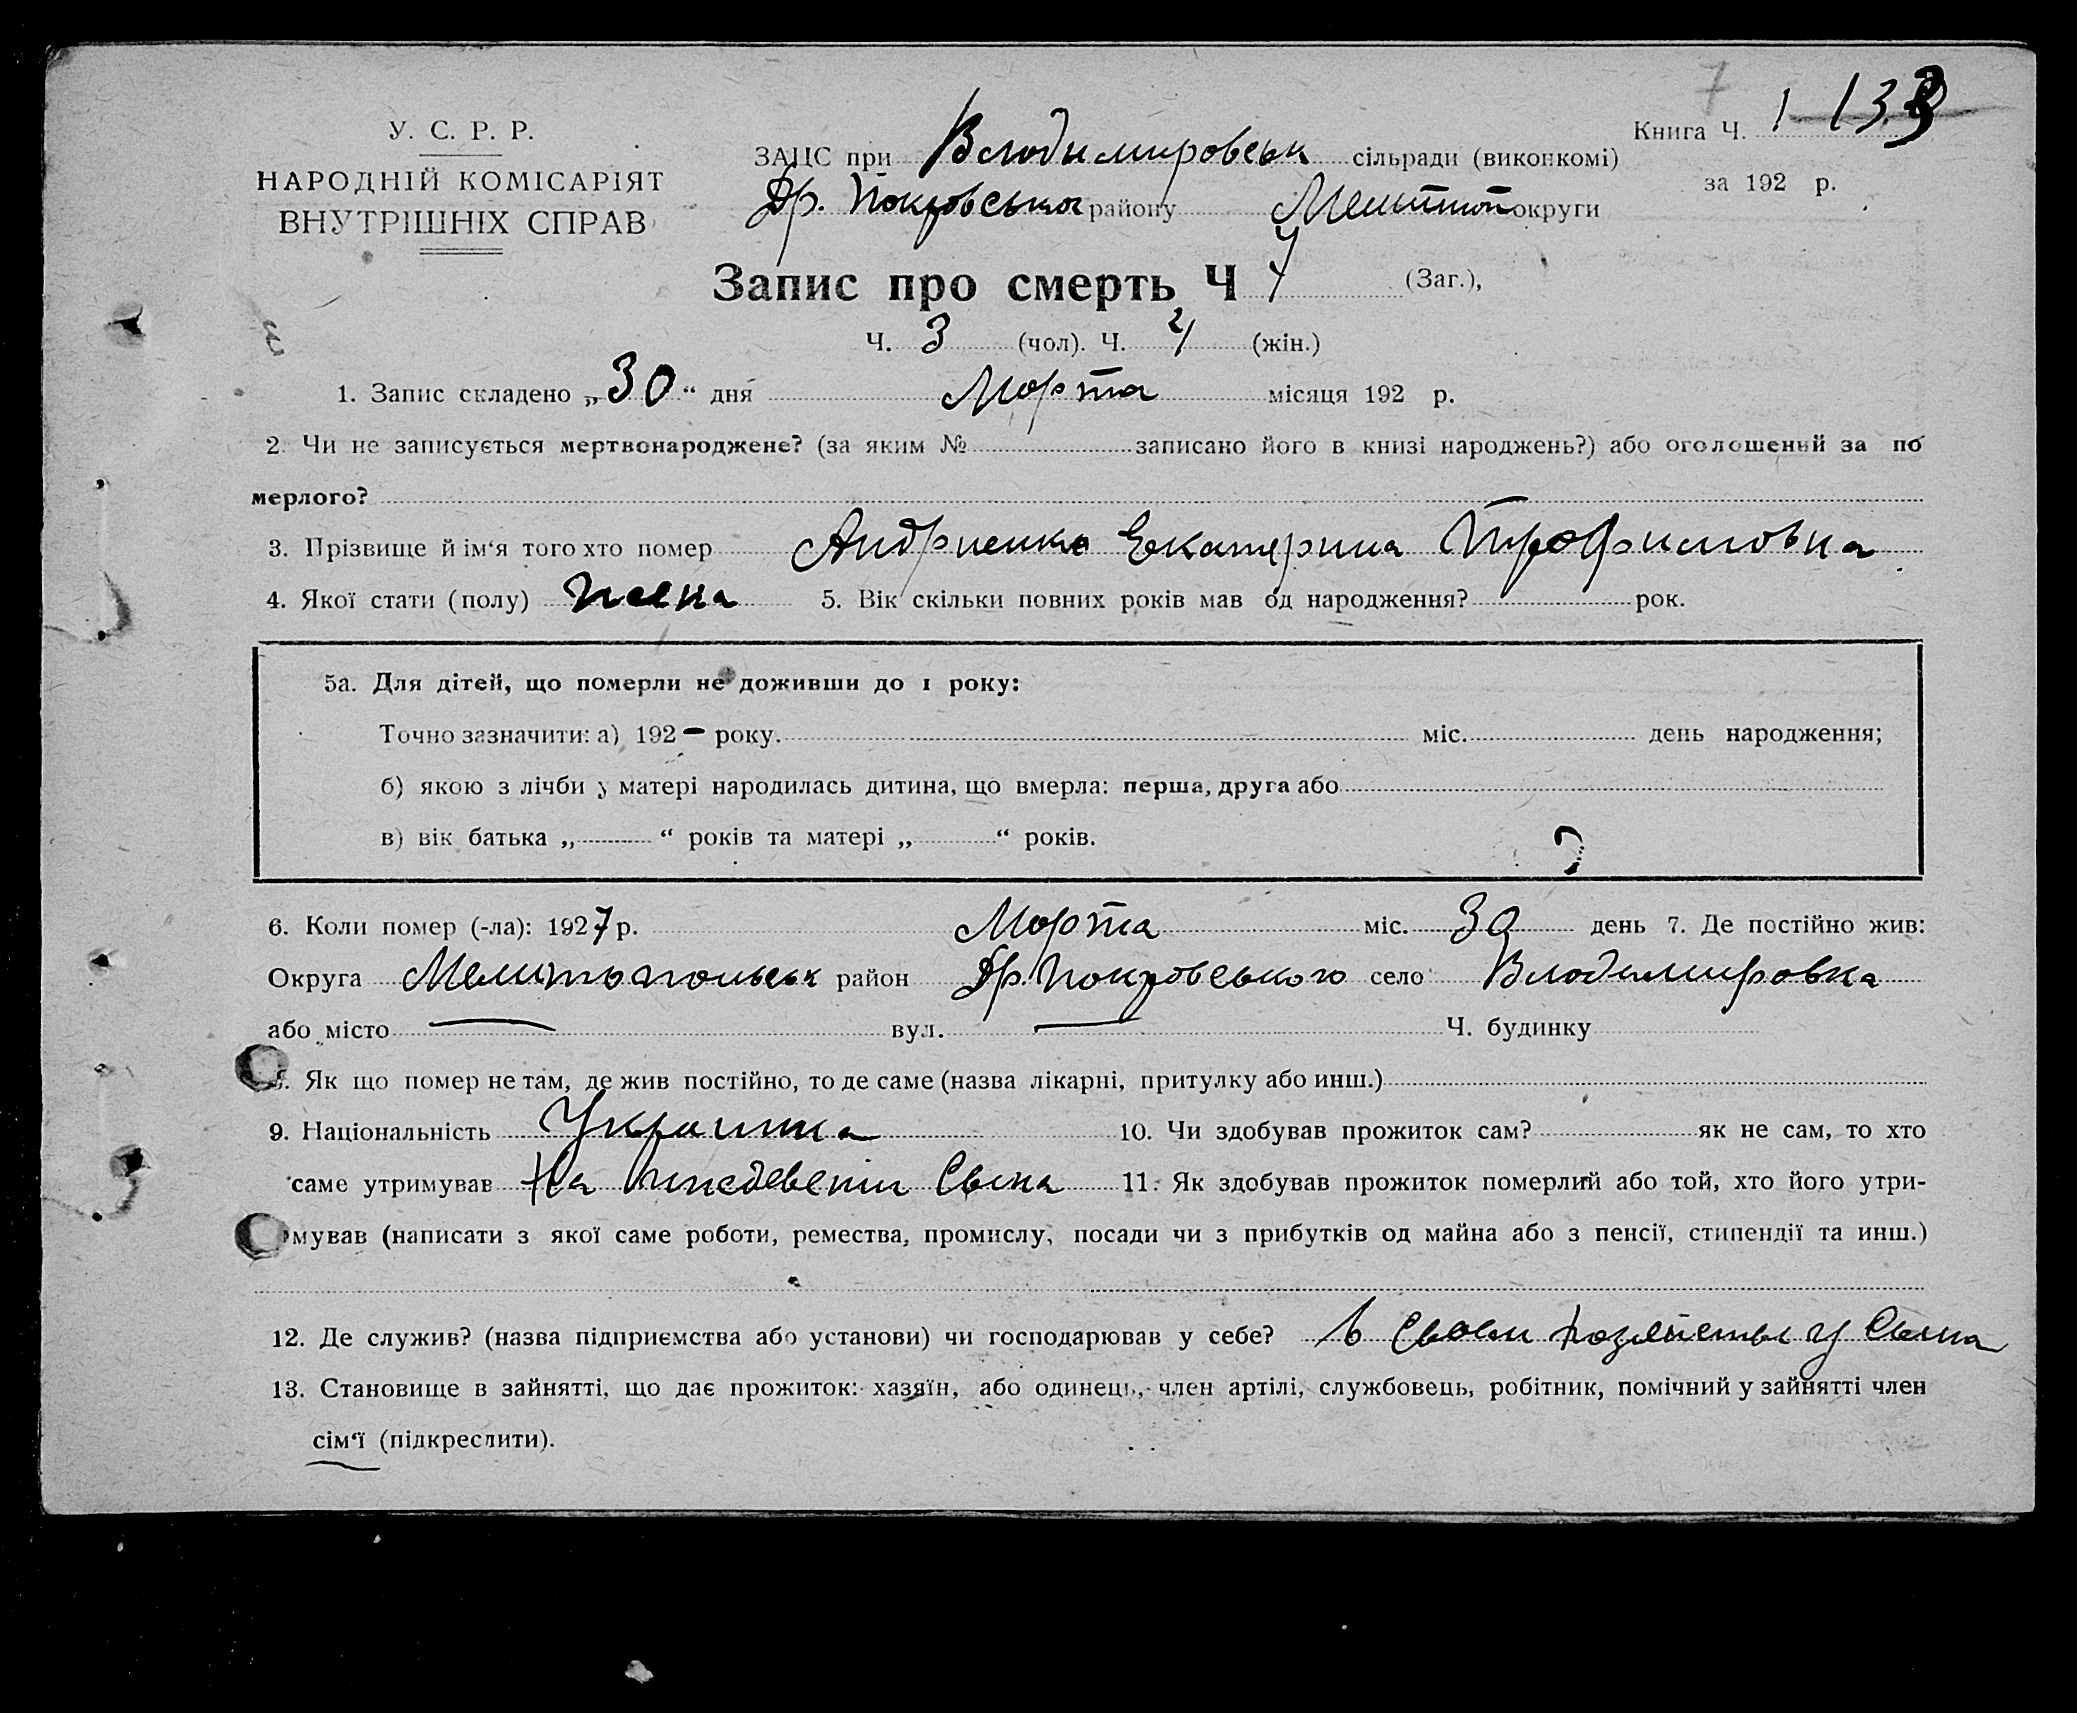 7 1 133
У. С. Р. Р.
НАРОДНІЙ КОМІСАРІЯТ
ВНУТРІШНІХ СПРАВ
Книга Ч.
за 192 р.
ЗАЦС при Влодимировськ сільради (виконкомі)
Др. Покровська району Мелитоп округи
Запис про смерть Ч 4 (Заг.),
Ч. 3 (чол). Ч. 4 (жін.)
1. Запис складено „30“ дня Морта місяця 192 р.
2. Чи не записується мертвонароджене? (за яким № записано його в книзі народжень?) або оголошений за по
мерлого?
3. Прізвище й ім‘я того хто помер Андриенко Екатерина Трофимовна
4. Якої стати (полу) жена 5. Вік скільки повних років мав од народження? рок.
5а. Для дітей, що померли не доживши до 1 року:
Точно зазначити: а) 192– року. міс. день народження;
б) якою з лічби у матері народилась дитина, що вмерла: перша, друга або
в) вік батька „ “ років та матері „ “ років.
6. Коли помер (-ла): 1927 р. Морта міс. 30 день 7. Де постійно жив:
Округа Мелитопольськ район Др. Покровського село Влодимировка
або місто — вул. — Ч. будинку
8. Як що помер не там, де жив постійно, то де саме (назва лікарні, притулку або инш.)
9. Національність Украинка 10. Чи здобував прожиток сам? як не сам, то хто
саме утримував На иждевении Сына 11. Як здобував прожиток померлий або той, хто його утри-
мував (написати з якої саме роботи, ремества, промислу, посади чи з прибутків од майна або з пенсії, стипендії та инш.)
12. Де служив? (назва підприємства або установи) чи господарював у себе? В своем у Сына
13. Становище в зайнятті, що дає прожиток: хазяїн, або одинець, член артілі, службовець, робітник, помічний у зайнятті член
сім‘ї (підкреслити).